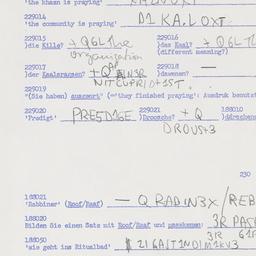 'the khasn is praying'
229014
'the community is praying' D1 KA.LOXT
229015 229016
]die Kille? + Q6L the ]das Kaal? + Q6L
organization (different meaning?)
229017 229018
]der Kaalsrausen? + Q ]dawenen? —
229019
'(Sie haben) ausgeort' (='they finished praying': Ausdruck benutzt
229020 229021 188010
'Predigt' PRE5D16E ]Droosche? + Q ]ddreschen
DROUS+3
230
188021
'Rabbiner' (Roof/Raaf) — Q RADIN3X/REB
188020
Bilden Sie einen Satz mit Roof/Raaf und passkenen: 3R PAS
188050
'sie geht ins Ritualbad'